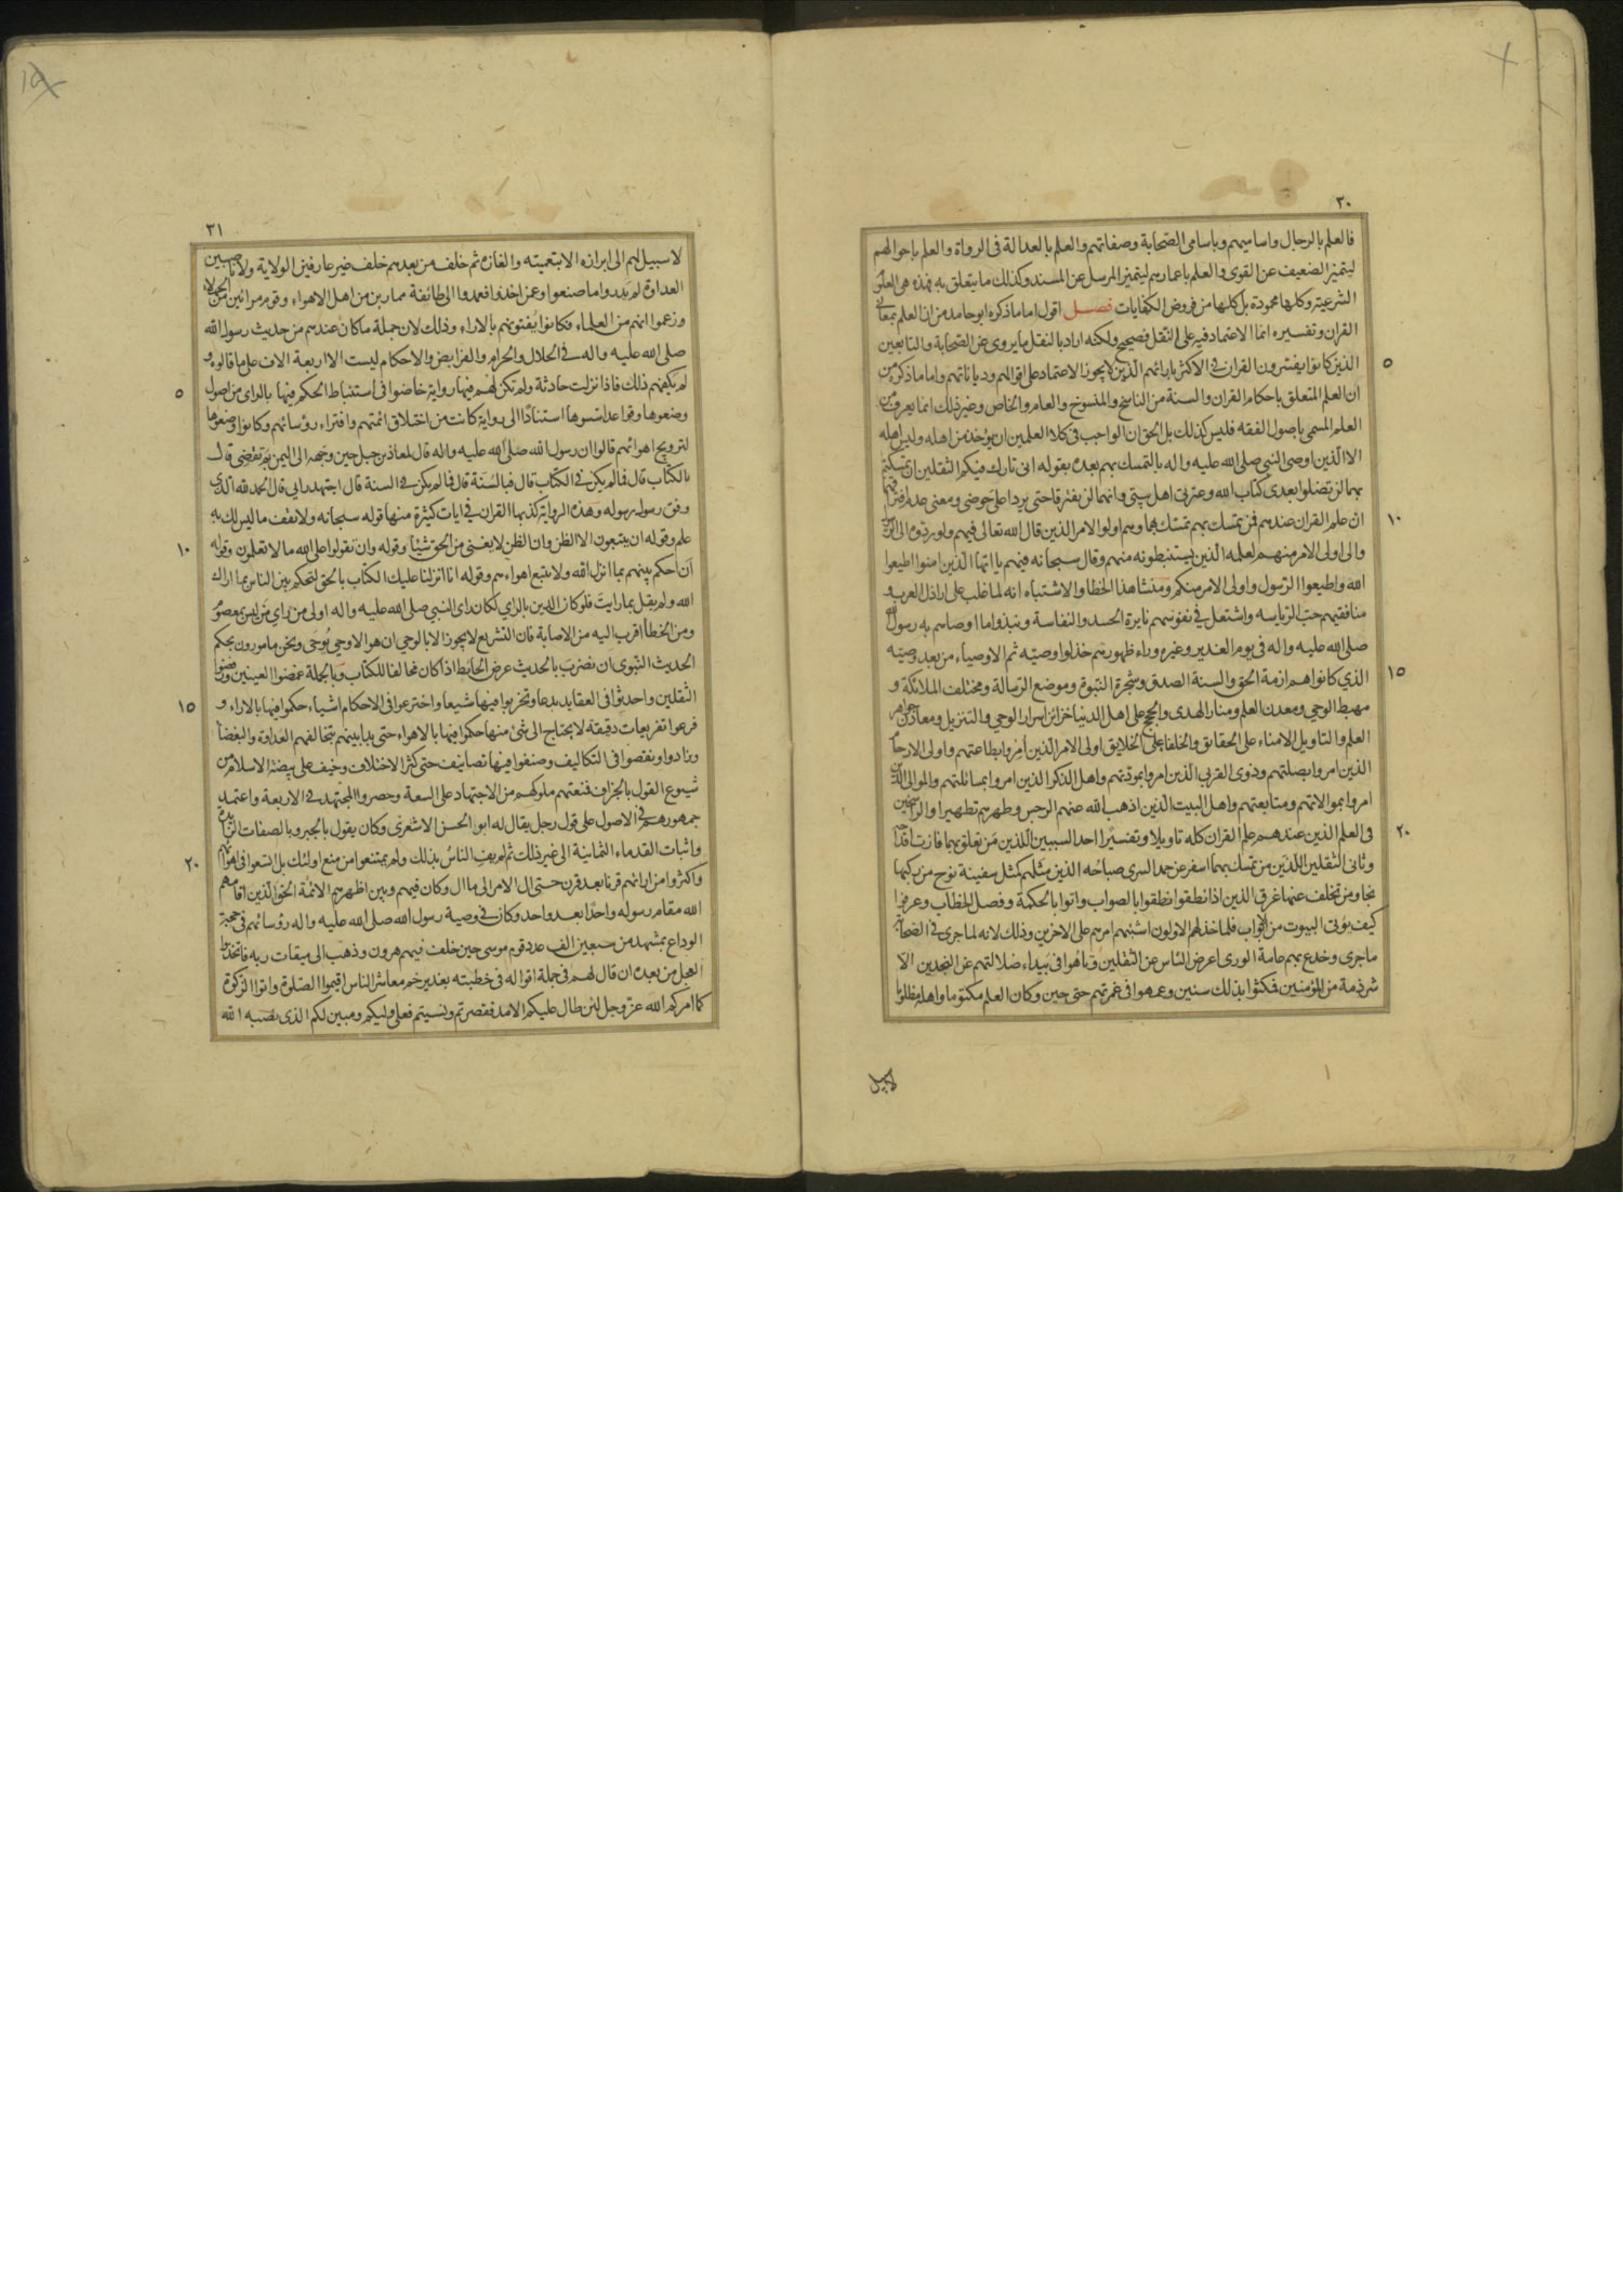 ٣٠
فالعلم بالرجال واساميهم وباسامى الصّحابة وصفاتهم والعلم بالعدالة فى الرواة والعلم باحوالهم
ليتميز الضعيف عن القوى والعلم باعمارهم ليتميز المرسل عن المسند وكذلك ما يتعلق به فهذه هى العلوم
الشرعية وكلها محمودة بل كلها من فروض الكفايات فصل اقول اما ما ذكره ابو حامد من ان العلم بمعانى
القران وتفسيره انما الاعتماد فيه على النّقل فصحيح ولكنه اراد بالنقل ما يروى عن الصّحابة والتابعين
الذين كانوا يفسّرون القران فى الاكثر بارائهم الّذين لا يجوز الاعتماد على اقوالهم ودياناتهم واما ما ذكره من
ان العلم المتعلق باحكام القران والسنة من الناسخ والمنسوخ والعام والخاص وغير ذلك انما يعرف من
العلم المسمى باصول الفقه فليس كذلك بل الحق ان الواجب فى كلا العلمين ان يؤخذ من اهله وليس اهله
الا الّذين اوصى النبى صلى الله عليه واله بالتمسك بهم بعده بقوله انى تارك فيكم الثقلين ان تمسكتم
بهما لن تضلوا بعدى كتاب الله وعترتى اهل بيتى وانهما لن يفترقا حتى يردا على حوضى ومعنى عدم افتراقهما
ان علم القران عندهم فمن تمسك بهم تمسك بهما وهم اولوا الامر الذين قال الله تعالى فيهم ولو ردّوه الى الرسول
والى اولى الامر منهم لعلمه الّذين يستنبطونه منهم وقال سبحانه فيهم يا ايّها الّذين امنوا اطيعوا
الله واطيعوا الرّسول واولى الامر منكم ومنشا هذا الخطا والاشتباه انه لما غلب على اراذل العرب و
منافقيهم حبّ الرّياسه واشتعل فى نفوسهم نايرة الحسد والنفاسة ونبذوا ما اوصاهم به رسول الله
صلى الله عليه واله فى يوم الغدير وغيره وراء ظهورهم خذلوا وصيّه ثم الاوصياء من بعد وصيّه
الذى كانوا هم ازمة الحق والسنة الصدق وشجرة النّبوة وموضع الرّسالة ومختلف الملائكة و
مهبط الوحى ومعدن العلم ومنار الهدى والحجج على اهل الدنيا خزائن اسرار الوحى والتنزيل ومعادن جواهر
العلم والتاويل الامناء على الحقائق والخلفاء على الخلايق اولى الامر الّذين أمِروا بطاعتهم واولى الارحام
الذين امروا بصلتهم وذوى القربى الّذين امروا بمودّتهم واهل الذكر الذين امروا بمسائلتهم والموالى الّذين
امروا بموالاتهم ومتابعتهم واهل البيت الّذين اذهب الله عنهم الرجس وطهرهم تطهيرا والراسخين
فى العلم الذين عندهم علم القران كله تاويلا وتفسيرًا احد السببين الّلذين من تعلق بهما فازت اقداحه
وثانى الثقلين اللذين من تمسك بهما اسفر عن حمد السرى صباحُه الذين مثلهم كمثل سفينة نوح من ركبها
نجا ومن تخلف عنها غرق الذين اذا نطقوا نطقوا بالصواب واتوا بالحكمة وفصل الخطاب وعرفوا
كيف يؤتى البيوت من الابواب فلما خذلهم الاولون اشتبهم امرهم على الاخرين وذلك لانه لما جرى فى الصّحابة
ما جرى وخدع بهم عامة الورى اعرض النّاس عن الثقلين وتاهُوا فى بَيداء ضلالتهم عن النجدين الّا
شرذمة من المؤمنين فمكثوا بذلك سنين وعمهوا فى غمرتهم حتى حين وكان العلم مكتوما واهله مظلوما
لا سبيل
٣١
لا سبيل لهم الى ابرازه الا بتعميته والغازه ثم خلف من بعدهم خلف غير عارفين الولاية ولا ناصبين
العداوة لم يَدروا ما صنعوا وعمّن اخذوا فعمدوا الى طائفة ممارين من اهل الاهواء وقوم مرائين من الجهلاء
وزعموا انهم من العلماء فكانوا يُفتونهم بالاراء وذلك لان جملة ما كان عندهم من حديث رسول الله
صلى الله عليه واله فى الحلال والحرام والفرايض والاحكام ليست الا اربعة الاف على ما قالوه و
لم يكفهم ذلك فاذا نزلت حادثة ولم تكن لهم فيها رواية خاضوا فى استنباط الحكم فيها بالراى من اصول
وضعوها وقواعد اسّسوها استنادًا الى رواية كانت من اختلاق ائمتهم وافتراء رؤسائهم وكانوا وضعوها
لترويج اهوائهم قالوا ان رسول الله صلى الله عليه واله قال لمعاذ بن جبل حين وجّهه الى اليمن بم تقضى قال
بالكتاب قال فما لم يكن فى الكتاب قال فبالسّنة قال فما لم يكن فى السنة قال اجتهد رايى قال الحمد لله الذى
وفق رسول رسوله وهذه الرواية كذبها القران فى ايات كثيرة منها قوله سبحانه ولا تقف ما ليس لك به
علم وقوله ان يتبعون الا الظن وان الظن لا يغنى من الحق شيئا وقوله وان تقولوا على الله ما لا تعلمون وقوله
أن احكم بينهم بما انزل الله ولا تتبع اهواءهم وقوله انا انزلنا عليك الكتاب بالحق لتحكم بين الناس بما اراك
الله ولم يقل بما رايت فلو كان الدين بالراي لكان راى النبى صلى الله عليه واله اولى من راي من ليس بمعصوم
ومن الخطأ اقرب اليه من الاصابة فان التشريع لا يجوز الا بالوحي ان هو الا وحى يُوحَى ونحن مامورون بحكم
الحديث النّبوى ان نضربَ بالحديث عرض الحايط اذا كان مخالفا للكتاب وبالجملة غمضوا العينين ورفضوا
الثقلين واحدثوا فى العقايد بدعا وتحزبوا فيها شيعا واخترعوا فى الاحكام اشياء حكموا فيها بالاراء و
فرعوا تفريعات دقيقة لا يحتاج الى شئ منها حكموا فيها بالاهواء حتى بدا بينهم بتخالفهم العداوة والبغضاء
وزادوا ونقصوا فى التكاليف وصنفوا فيها تصانيف حتى كثر الاختلاف وخيف على بيضة الاسلام من
شيوع القول بالجزاف فمنعتهم ملوكهم من الاجتهاد على السعة وحصروا المجتهد فى الاربعة واعتمد
جمهورهم فى الاصول على قول رجل يقال له ابو الحسن الاشعرى وكان يقول بالجبر وبالصفات الزّايدة
واثبات القدماء الثمانية الى غير ذلك ثم لم يفِ الناسُ بذلك ولم يمتنعوا من منع اولئك بل اتسعوا فى اهوائهم
واكثروا من ارائهم قرنا بعد قرن حتى ال الامر الى ما ال وكان فيهم وبين اظهرهم الائمّة الحق الّذين اقامهم
الله مقام رسوله واحدًا بعد واحد وكان فى وصية رسول الله صلى الله عليه واله رؤسائهم فى حجة
الوداع بمشهد من سبعين الف عدد قوم موسى حين خلف فيهم هرون وذهب الى ميقات ربه فاتخذوا
العجل من بعده ان قال لهم فى جملة اقواله فى خطبته بغدير خم معاشر الناس اقيموا الصّلوة واتوا الزكوة
كما امركم الله عز وجل لئن طال عليكم الامد فقصرتم ونسيتم فعلى وليكم ومبين لكم الذى نصبه الله